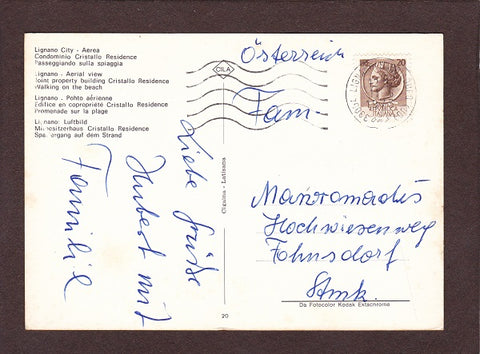 Lignano City - Aerea
Condominio Cristallo Residence
Passeggiando sulla spiaggia
Lignano - Aerial view
Joint property building Cristallo Residence
Walking on the beach
Lignano - Pohto aérienne
Edifice en coproprieté Cristallo Residence
Promenade sur la plage
Lignano: Luftbild
Mitbesitzerhaus Cristallo Residence
Spaziergang auf dem Strand
Liebe Grüße
Hubert mit
Familie
CILA
20
ITALIANA
Österreich
Fam-
Hochwiesenweg
Fohnsdorf
Stmk.
Da Fotocolor Kodak Ektachrome
Cigaina - Latisana
20